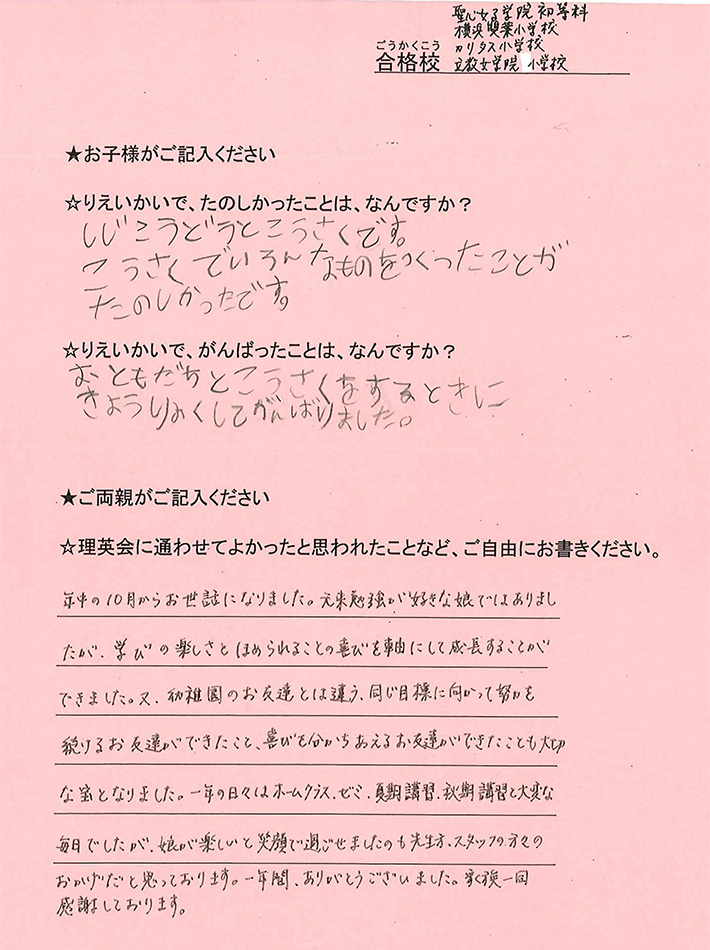 聖心女子学院初等科
横浜雙葉小学校
カリタス小学校
ごうかくこう
合格校 立教女学院 小学校
★お子様がご記入ください
☆りえいかいで、たのしかったことは、なんですか？
しじこうどうとこうさくです。
こうさくでいろんなものをつくったことが
たのしかったです。
☆りえいかいで、がんばったことは、なんですか？
おともだちとこうさくをするときに
きょうりょくしてがんばりました。
★ご両親がご記入ください
☆理英会に通わせてよかったと思われたことなど、ご自由にお書きください。
年中の10月からお世話になりました。元来勉強が好きな娘ではありまし
たが、学びの楽しさとほめられることの喜びを軸にして成長することが
できました。又、幼稚園のお友達とは違う、同じ目標に向かって努力を
続けるお友達ができたこと、喜びを分かちあえるお友達ができたことも大切
な宝となりました。一年の日々はホームクラス、ゼミ、夏期講習、秋期講習と大変な
毎日でしたが、娘が楽しいと笑顔で過ごせましたのも先生方、スタッフの方々の
おかげだと思っております。一年間、ありがとうございました。家族一同
感謝しております。